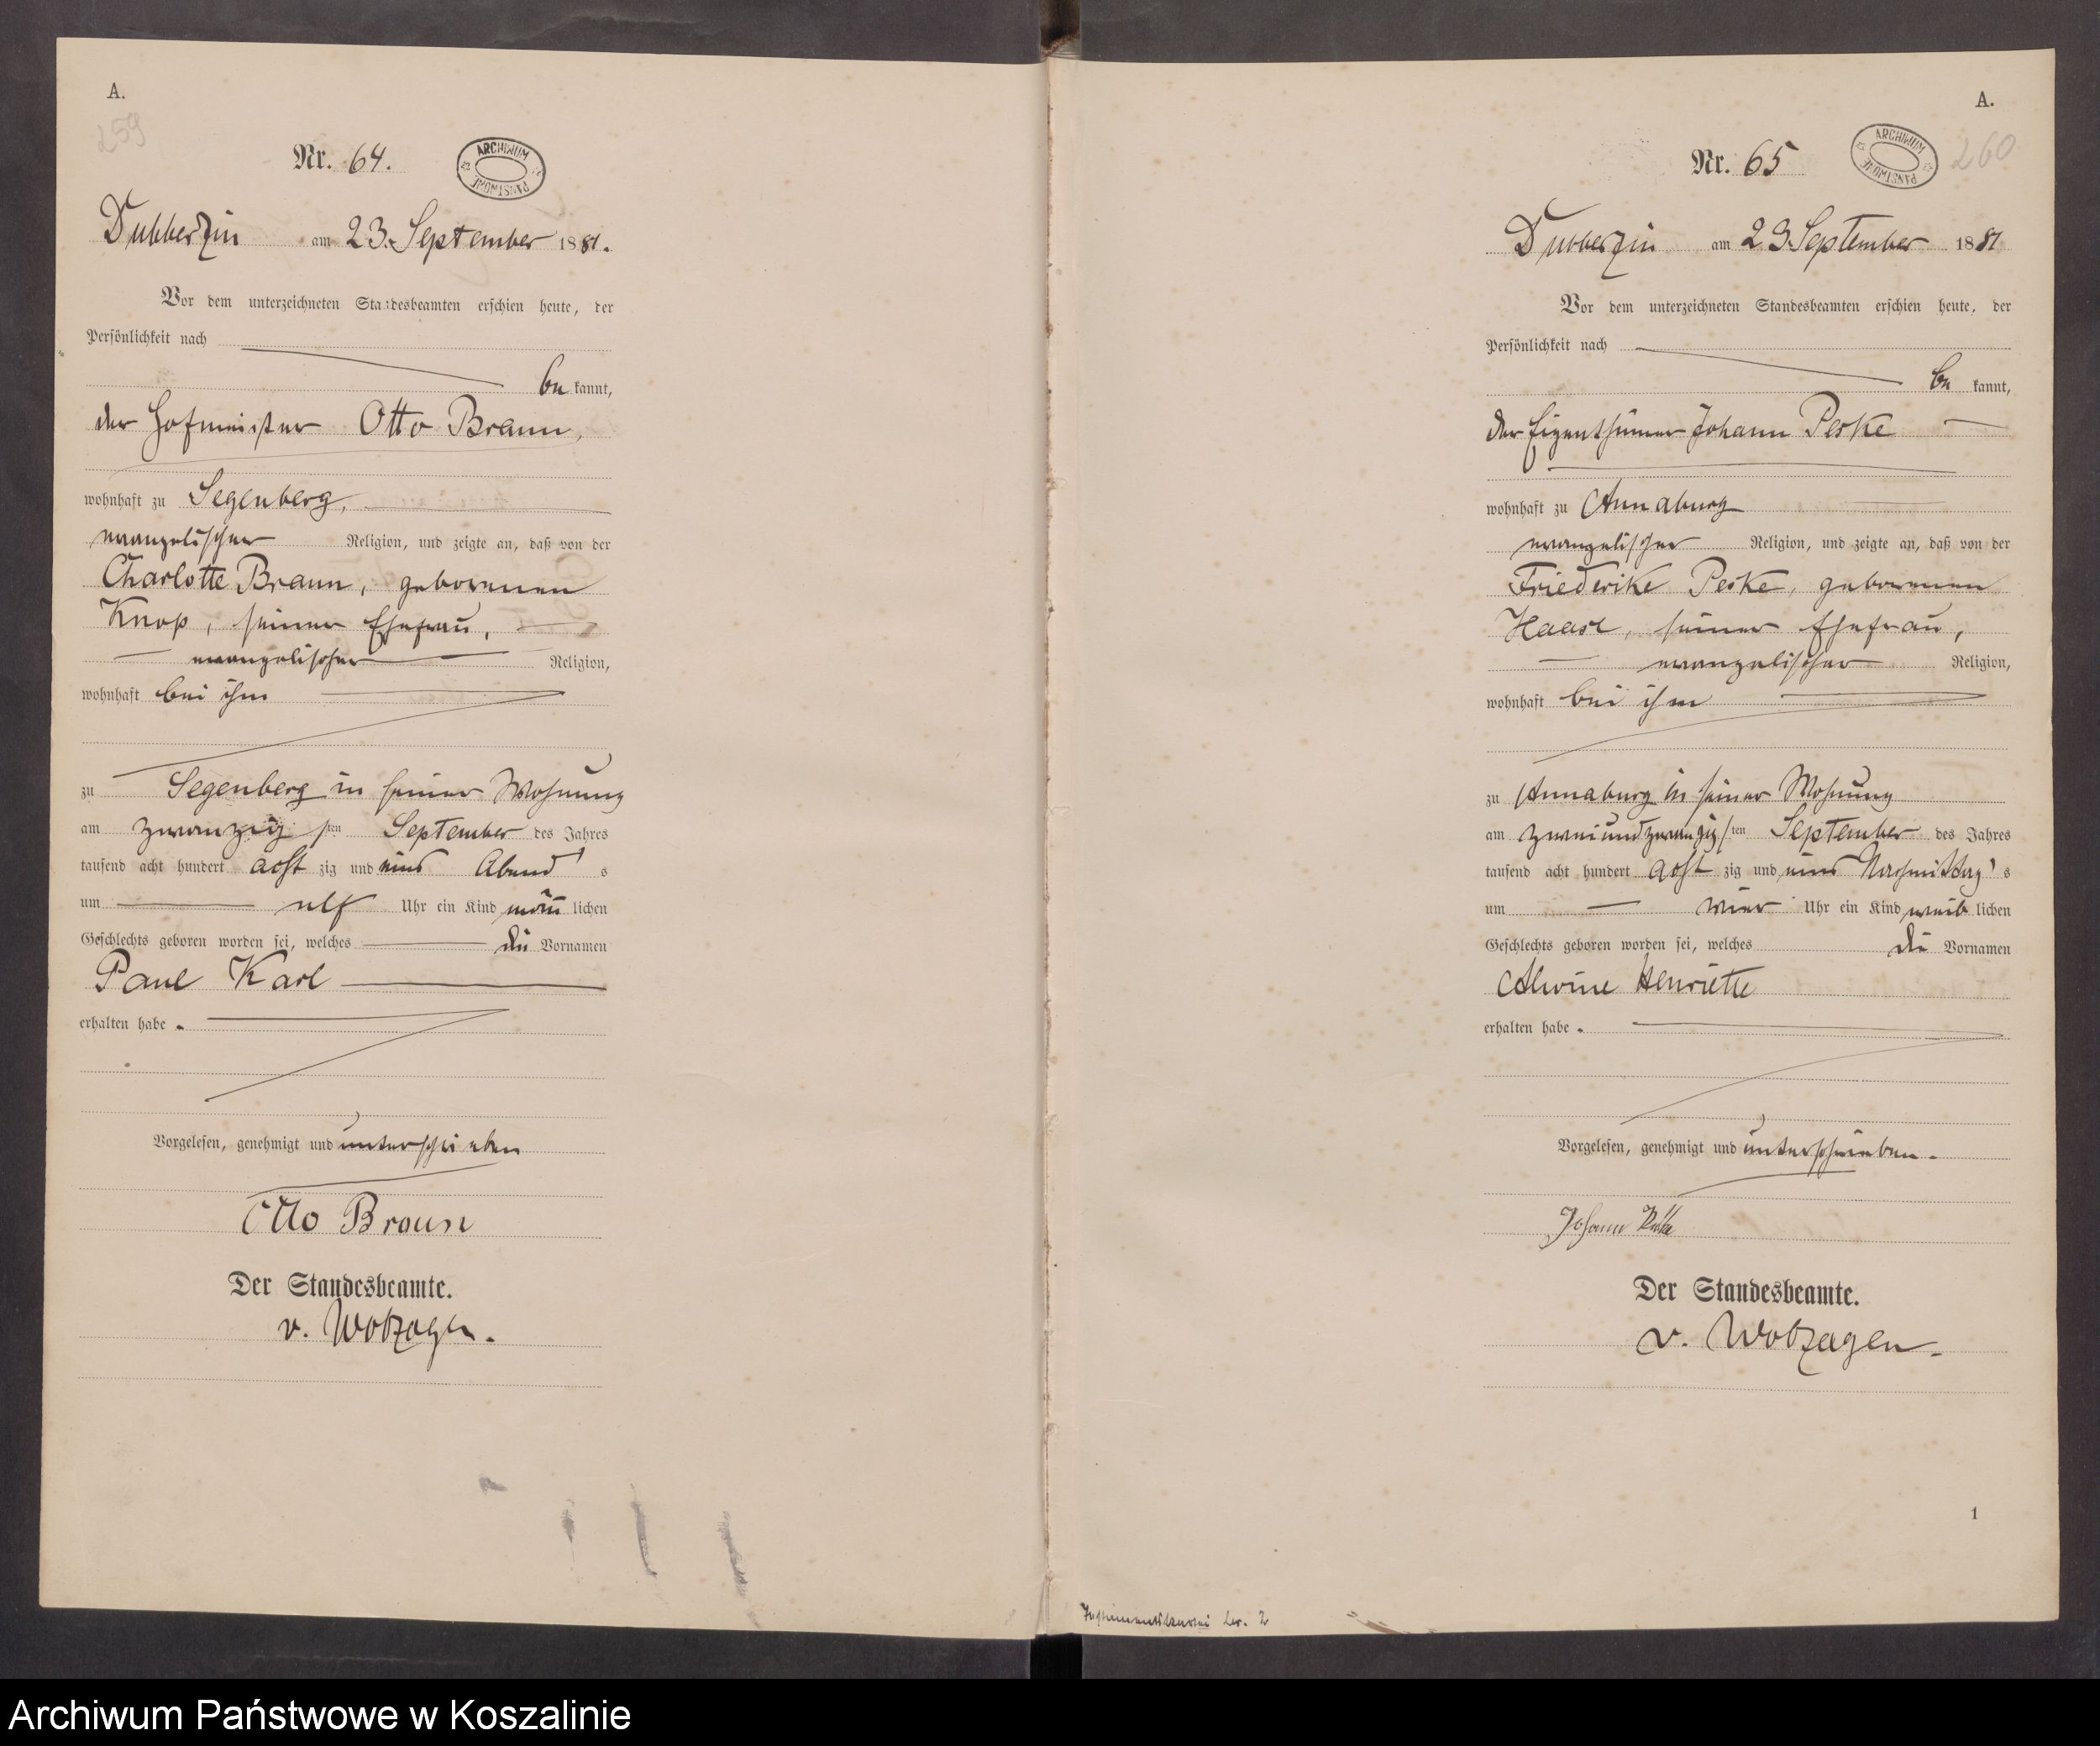 A.
259
Nr. 64.
ARCHIWUM
PAŃSTWOWE
Dubberzin am 23. September 1881.
Vor dem unterzeichneten Standesbeamten erschien heute, der
Persönlichkeit nach
be kannt,
der Hofmeister Otto Braun,
wohnhaft zu Segenberg,
evangelischer Religion, und zeigte an, daß von der
Charlotte Braun, geborenen
Knop, seiner Ehefrau,
evangelischer Religion,
wohnhaft bei ihm
zu Segenberg in seiner Wohnung
am zwanzigsten September des Jahres
tausend acht hundert acht zig und eins Abends
um elf Uhr ein Kind männ lichen
Geschlechts geboren worden sei, welches die Vornamen
Paul Karl
erhalten habe.
Vorgelesen, genehmigt und unterschrieben
Otto Braun
Der Standesbeamte.
v. Wolzogen.
A.
260
Nr. 65
ARCHIWUM
PAŃSTWOWE
Dubberzin am 23. September 1881
Vor dem unterzeichneten Standesbeamten erschien heute, der
Persönlichkeit nach
be kannt,
der Eigenthümer Johann Peske
wohnhaft zu Annaburg
evangelischer Religion, und zeigte an, daß von der
Friederike Peske, geborenen
Haase, seiner Ehefrau,
evangelischer Religion,
wohnhaft bei ihm
zu Annaburg in seiner Wohnung
am zweiundzwanzigsten September des Jahres
tausend acht hundert acht zig und eins Nachmittags
um vier Uhr ein Kind weib lichen
Geschlechts geboren worden sei, welches die Vornamen
Alwine Henriette
erhalten habe.
Vorgelesen, genehmigt und unterschrieben.
Johann Peske
Der Standesbeamte.
v. Wolzogen.
1
Archiwum Państwowe w Koszalinie